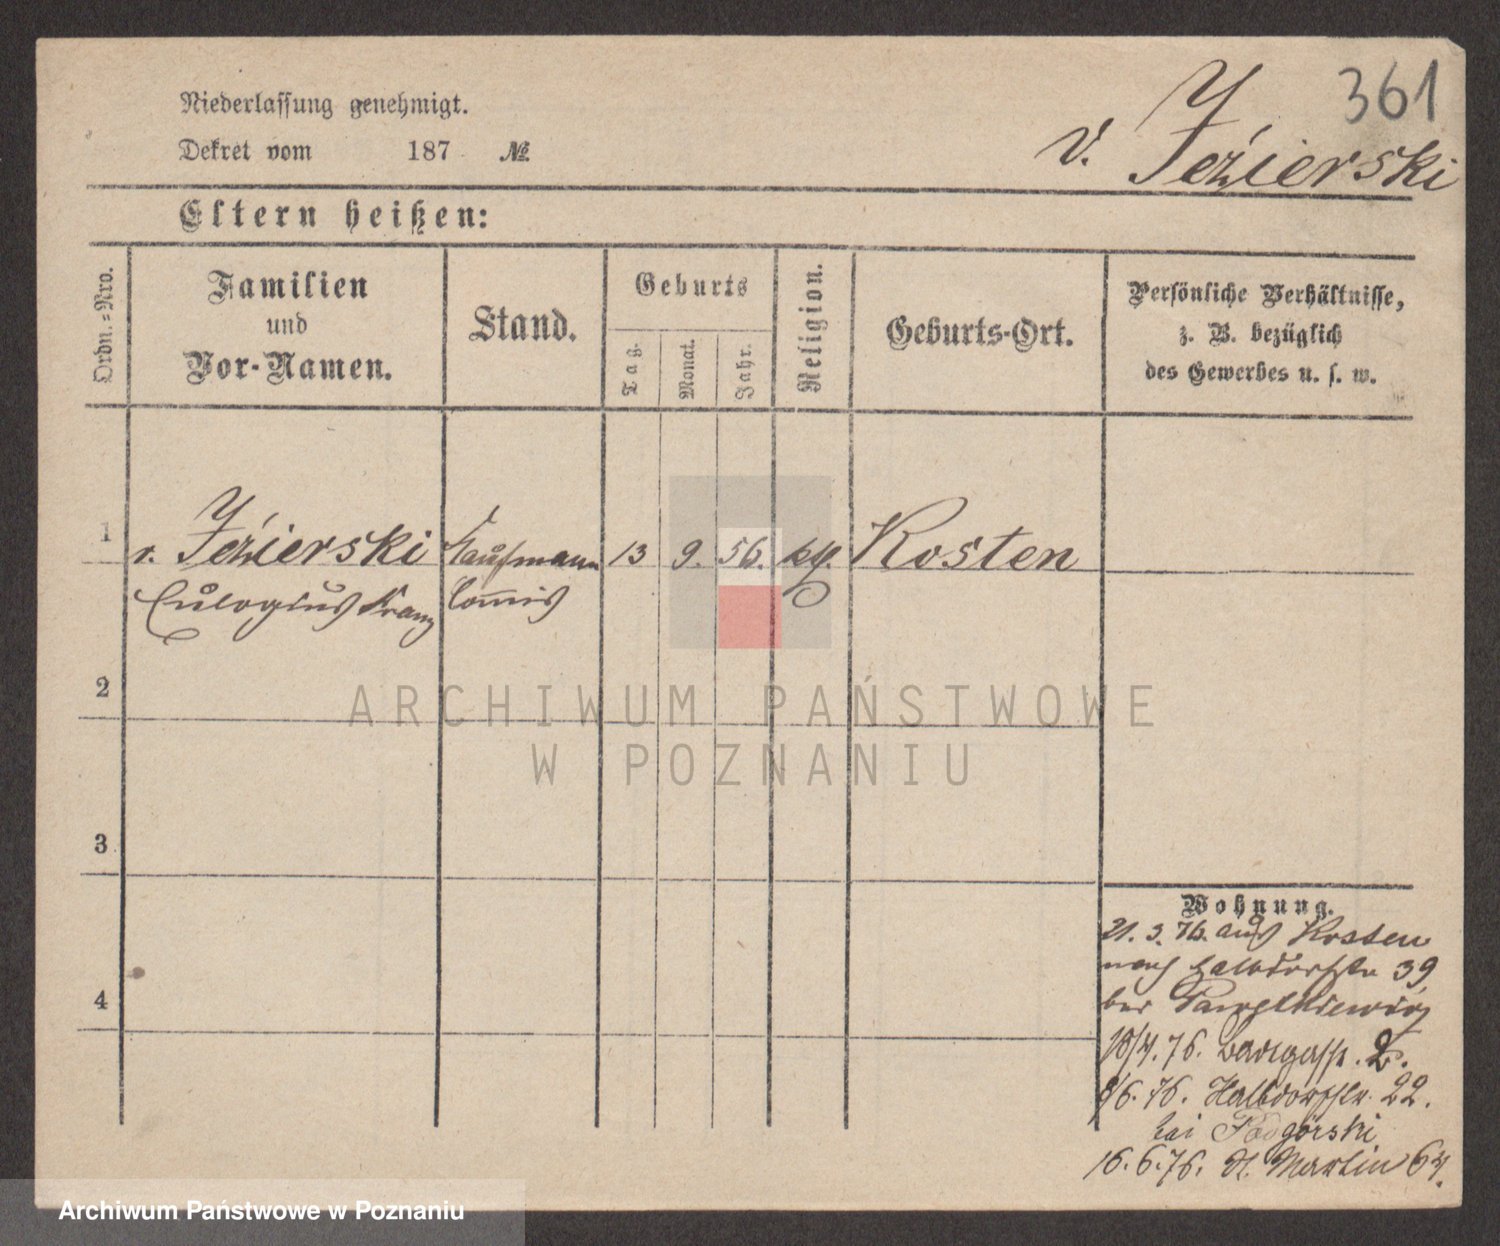 361
v. Jeżierski
Niederlassung genehmigt.
Dekret vom 187 №
Eltern heißen:
Ordn.=Nro.
Familien
und
Vor-Namen.
Stand.
Geburts
Tag.
Monat.
Jahr.
Religion.
Geburts-Ort.
Persönliche Verhältnisse,
z. B. bezüglich
des Gewerbes u. s. w.
1
v. Jeżierski Kaufmann 13 9. 56. Kosten
Eulogius Franz Commis
2
3
4
Wohnung.
21. 3. 76. aus Kosten
nach Halbdorfstr 39
bei
10/4. 76. . 2.
76. Halbdorfstr. 22.
bei Podgórski
16. 6. 76. St. Martin 64.
ARCHIWUM PAŃSTWOWE
W POZNANIU
Archiwum Państwowe w Poznaniu